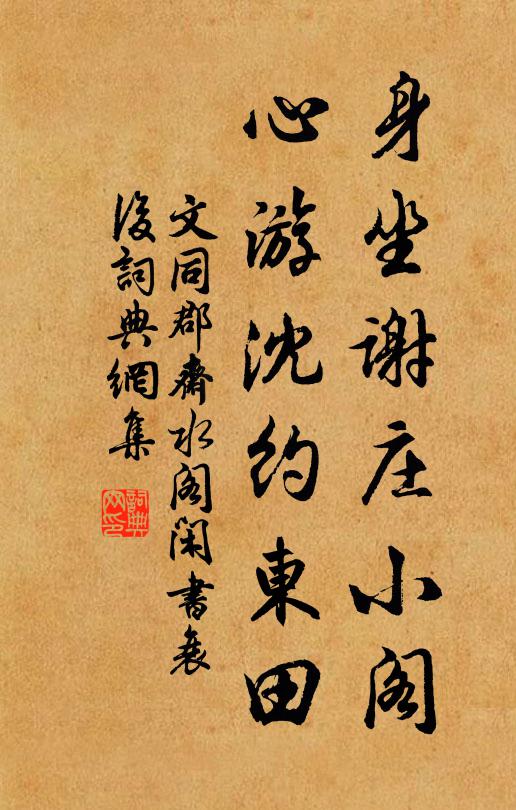 身坐谢庄小阁
心游沈约東田
文同郡齋水阁闲書衰
後詞典網集
詞典网印